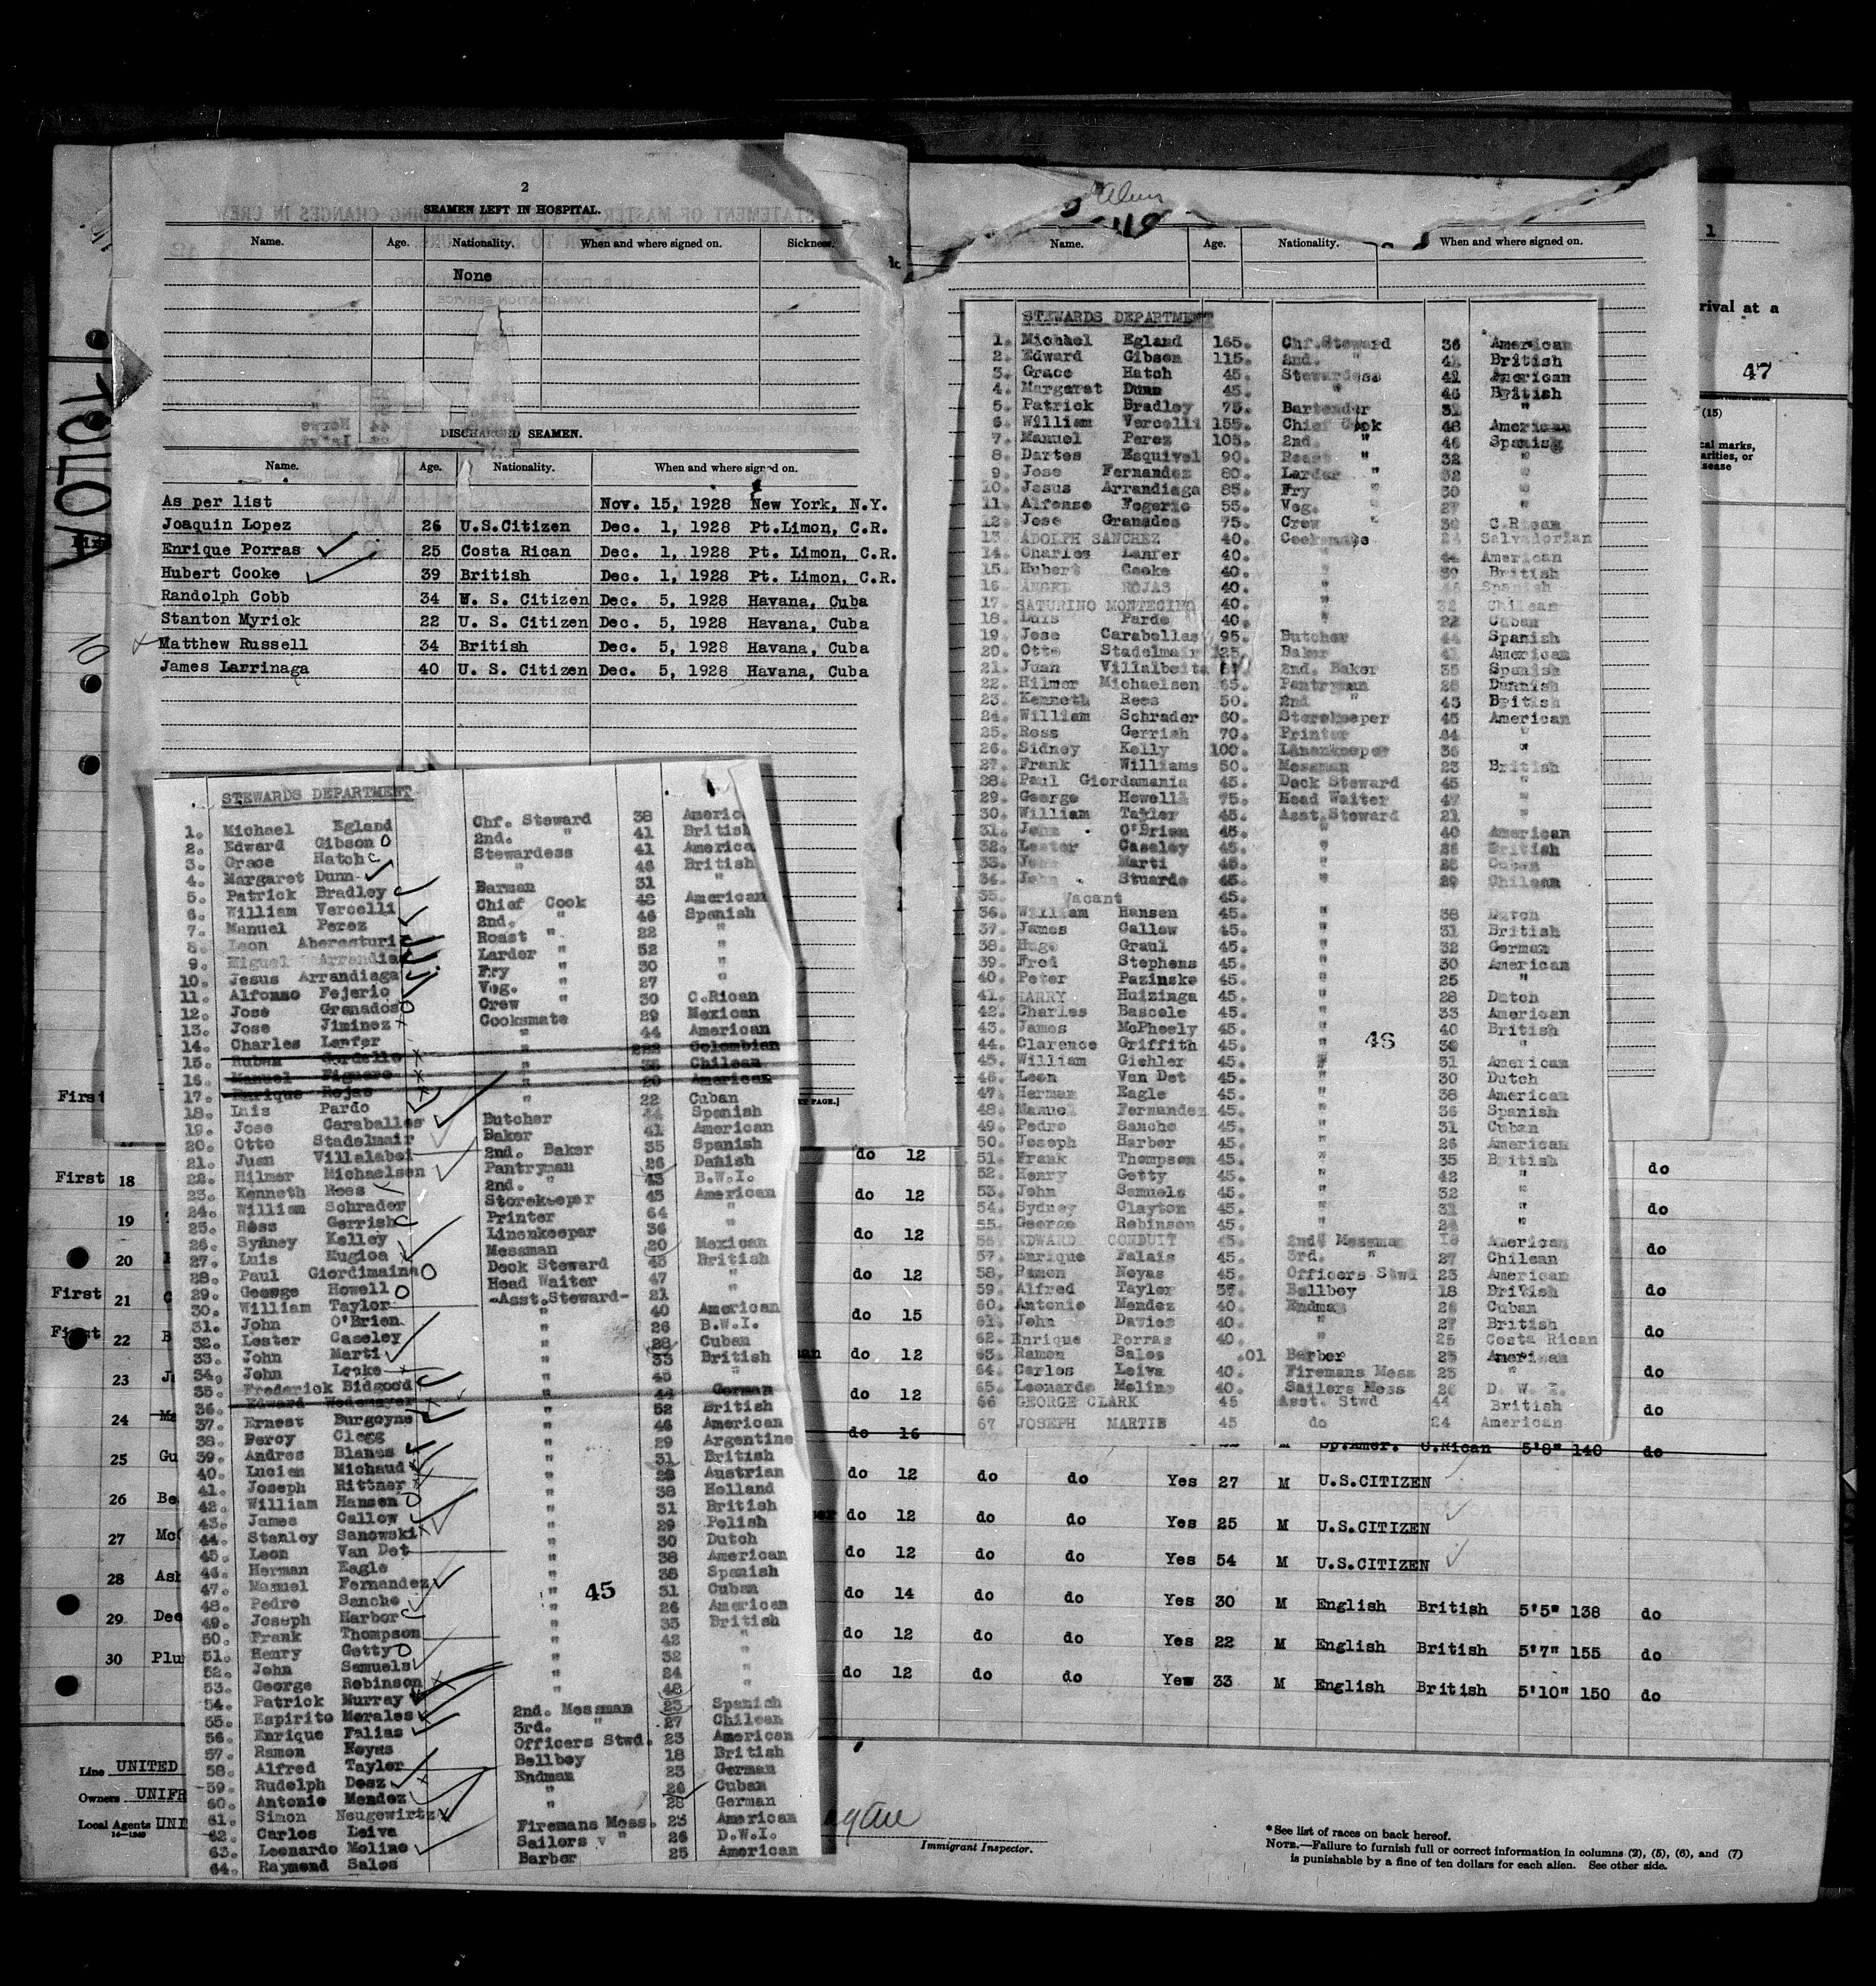 2
SEAMEN LEFT IN HOSPITAL.
Name. Age. Nationality. When and where signed on. Sickness.
None
DISCHARGED SEAMEN.
Name. Age. Nationality. When and where signed on.
As per list Nov. 15, 1928 New York, N.Y.
Joaquin Lopez 26 U.S.Citizen Dec. 1, 1928 Pt.Limon, C.R.
Enrique Porras 25 Costa Rican Dec. 1, 1928 Pt. Limon, C.R.
Hubert Cooke 39 British Dec. 1, 1928 Pt. Limon, C.R.
Randolph Cobb 34 U. S. Citizen Dec. 5, 1928 Havana, Cuba
Stanton Myrick 22 U. S. Citizen Dec. 5, 1928 Havana, Cuba
Matthew Russell 34 British Dec. 5, 1928 Havana, Cuba
James Larrinaga 40 U. S. Citizen Dec. 5, 1928 Havana, Cuba
TOLOA
10
STEWARDS DEPARTMENT
1. Michael Egland Chf. Steward 38 Americ
2. Edward Gibson 2nd. " 41 British
3. Grace Hatch Stewardess 41 America
4. Margaret Dunn " 46 British
5. Patrick Bradley Barman 31 "
6. William Vercelli Chief Cook 48 American
7. Manuel Perez 2nd. " 46 Spanish
8. Leon Aberesturi Roast " 22 "
9. Miguel Arrandia Larder " 52 "
10. Jesus Arrandiaga Fry " 30 "
11. Alfonso Fejerio Veg. " 27 "
12. Jose Granados Crew " 30 C.Rican
13. Jose Jiminez Cooksmate 29 Mexican
14. Charles Lanfer " 44 American
15. Ruben Gordello " Colombian
16. Manuel Figuero " Chilean
17. Enrique Rojas " 20 American
18. Luis Pardo " 22 Cuban
19. Jose Caraballes Butcher 44 Spanish
20. Otto Stadelmair Baker 41 American
21. Juan Villalabei 2nd. Baker 35 Spanish
22. Hilmer Michaelsen Pantryman 26 Danish
23. Kenneth Rees 2nd. " 43 B.W.I.
24. William Schrader Storekeeper 45 American
25. Ross Gerrish Printer 64 "
26. Sydney Kelley Linenkeeper 36 "
27. Luis Mugica Messman 20 Mexican
28. Paul Giordimaina Deck Steward 45 British
29. George Howell Head Waiter 47 "
30. William Taylor -Asst.Steward- 21 "
31. John O'Brien " 40 American
32. Lester Caseley " 26 B.W.I.
33. John Marti " 28 Cuban
34. John Leake " 33 British
35. Frederick Bidgood " 45 "
36. Edward Wedemayer " 44 German
37. Ernest Burgoyne " 52 British
38. Percy Clegg " 46 American
39. Andres Blanes " 29 Argentine
40. Lucien Michaud " 31 British
41. Joseph Rittner " 28 Austrian
42. William Hansen " 38 Holland
43. James Callow " 31 British
44. Stanley Sanowski " 29 Polish
45. Leon Van Det " 30 Dutch
46. Herman Eagle " 38 American
47. Manuel Fernandez " 38 Spanish
48. Pedro Sanche " 31 Cuban
49. Joseph Harbor " 26 American
50. Frank Thompson " 35 British
51. Henry Getty " 42 "
52. John Samuels " 32 "
53. George Robinson " 24 "
54. Patrick Murray " 48 "
55. Espirito Morales 2nd. Messman 23 Spanish
56. Enrique Falias 3rd. " 27 Chilean
57. Ramon Noyas Officers Stwd. 23 American
58. Alfred Taylor Bellboy 18 British
59. Rudolph Desz Endman 23 German
60. Antonio Mendez " 26 Cuban
61. Simon Neugewirtz " 28 German
62. Carlos Leiva Firemans Mess. 23 American
63. Leonardo Molino Sailors " 26 D.W.I.
64. Raymond Sales Barber 25 American
45
Name. Age. Nationality. When and where signed on.
STEWARDS DEPARTMENT
1. Michael Egland 165. Chf.Steward 36 American
2. Edward Gibson 115. 2nd. " 41 British
3. Grace Hatch 45. Stewardess 41 American
4. Margaret Dunn 45. " 46 British
5. Patrick Bradley 75. Bartender 31 "
6. William Vercelli 155. Chief Cook 48 American
7. Manuel Perez 105. 2nd. " 46 Spanish
8. Dartes Esquivel 90. Roast " 32 "
9. Jose Fernandez 80. Larder " 32 "
10. Jesus Arrandiaga 85. Fry " 30 "
11. Alfonso Fegerio 55. Veg. " 27 "
12. Jose Granados 75. Crew " 30 C.Rican
13. ADOLPH SANCHEZ 40. Cooksmate 24 Salvadorian
14. Charles Lanfer 40. " 44 American
15. Hubert Cooke 40. " 39 British
16. ANGEL ROJAS 40. " Spanish
17. SATURINO MONTECINO 40. " 32 Chilean
18. Luis Pardo 40. " 22 Cuban
19. Jose Carabellas 95. Butcher 44 Spanish
20. Otto Stadelmair 125. Baker 41 American
21. Juan Villalbeita 2nd. Baker 35 Spanish
22. Hilmer Michaelsen 65. Pantryman 26 Dannish
23. Kenneth Rees 50. 2nd " 43 British
24. William Schrader 60. Storekeeper 45 American
25. Ross Gerrish 70. Printer 44 "
26. Sidney Kelly 100. Linenkeeper 36 "
27. Frank Williams 50. Messman 23 British
28. Paul Giordamania 45. Deck Steward 45 "
29. George Howell 75. Head Waiter 47 "
30. William Taylor 45. Asst.Steward 21 "
31. John O'Brien 45. " 40 American
32. Lester Caseley 45. " 26 British
33. John Marti 45. " 28 Cuban
34. John Stuardo 45. " 29 Chilean
35. Vacant 45.
36. William Hansen 45. " 38 Dutch
37. James Callow 45. " 31 British
38. Hugo Graul 45. " 32 German
39. Fred Stephens 45. " 30 American
40. Peter Pazinske 45. " 25 "
41. HARRY Huizinga 45. " 28 Dutch
42. Charles Bascole 45. " 33 American
43. James McPheely 45. " 40 British
44. Clarence Griffith 45. " 30 "
45. William Giehler 45. " 31 American
46. Leon Van Det 45. " 30 Dutch
47. Herman Eagle 45. " 38 American
48. Manuel Fernandez 45. " 36 Spanish
49. Pedro Sanche 45. " 31 Cuban
50. Joseph Harber 45. " 26 American
51. Frank Thompson 45. " 35 British
52. Henry Getty 45. " 42 "
53. John Samuels 45. " 32 "
54. Sydney Clayton 45. " 31 "
55. George Robinson 45. " 24 "
56. EDWARD CONDUIT 45. 2nd. Messman 18 American
57. Enrique Falais 45. 3rd. " 27 Chilean
58. Ramon Noyas 45. Officers Stwd 23 American
59. Alfred Taylor Bellboy 18 British
60. Antonio Mendez 40. Endman 26 Cuban
61. John Davies 40. " 27 British
62. Enrique Porras 40. " 25 Costa Rican
63. Ramon Sales .01 Barber 25 American
64. Carlos Leiva 40. Firemans Mess 23 "
65. Leonardo Molino 40. Sailors Mess 26 D. W. I.
66 GEORGE CLARK 45 Asst. Stwd 44 British
67 JOSEPH MARTIB 45 do 24 American
46
1
rival at a
47
(15)
cal marks,
arities, or
isease
PAGE.]
First
First 18 do 12 do
19 do 12 do
20 do 12 do
First 21 do 12 do
First 22 do 15 do
23 do 12 do
24 do 12 do
do 16 M Sp.Amer. C.Rican 5'8" 140 do
25 Gu do 12 do do Yes 27 M U.S.CITIZEN
26 Be do 12 do do Yes 25 M U.S.CITIZEN
27 Mc do 12 do do Yes 54 M U.S.CITIZEN
28 Ash do 14 do do Yes 30 M English British 5'5" 138 do
29 Dee do 12 do do Yes 22 M English British 5'7" 155 do
30 Plu do 12 do do Yew 33 M English British 5'10" 150 do
Line UNITED
Owners UNIFR
Local Agents UNI
Immigrant Inspector.
*See list of races on back hereof.
NOTE.—Failure to furnish full or correct information in columns (2), (5), (6), and (7)
is punishable by a fine of ten dollars for each alien. See other side.